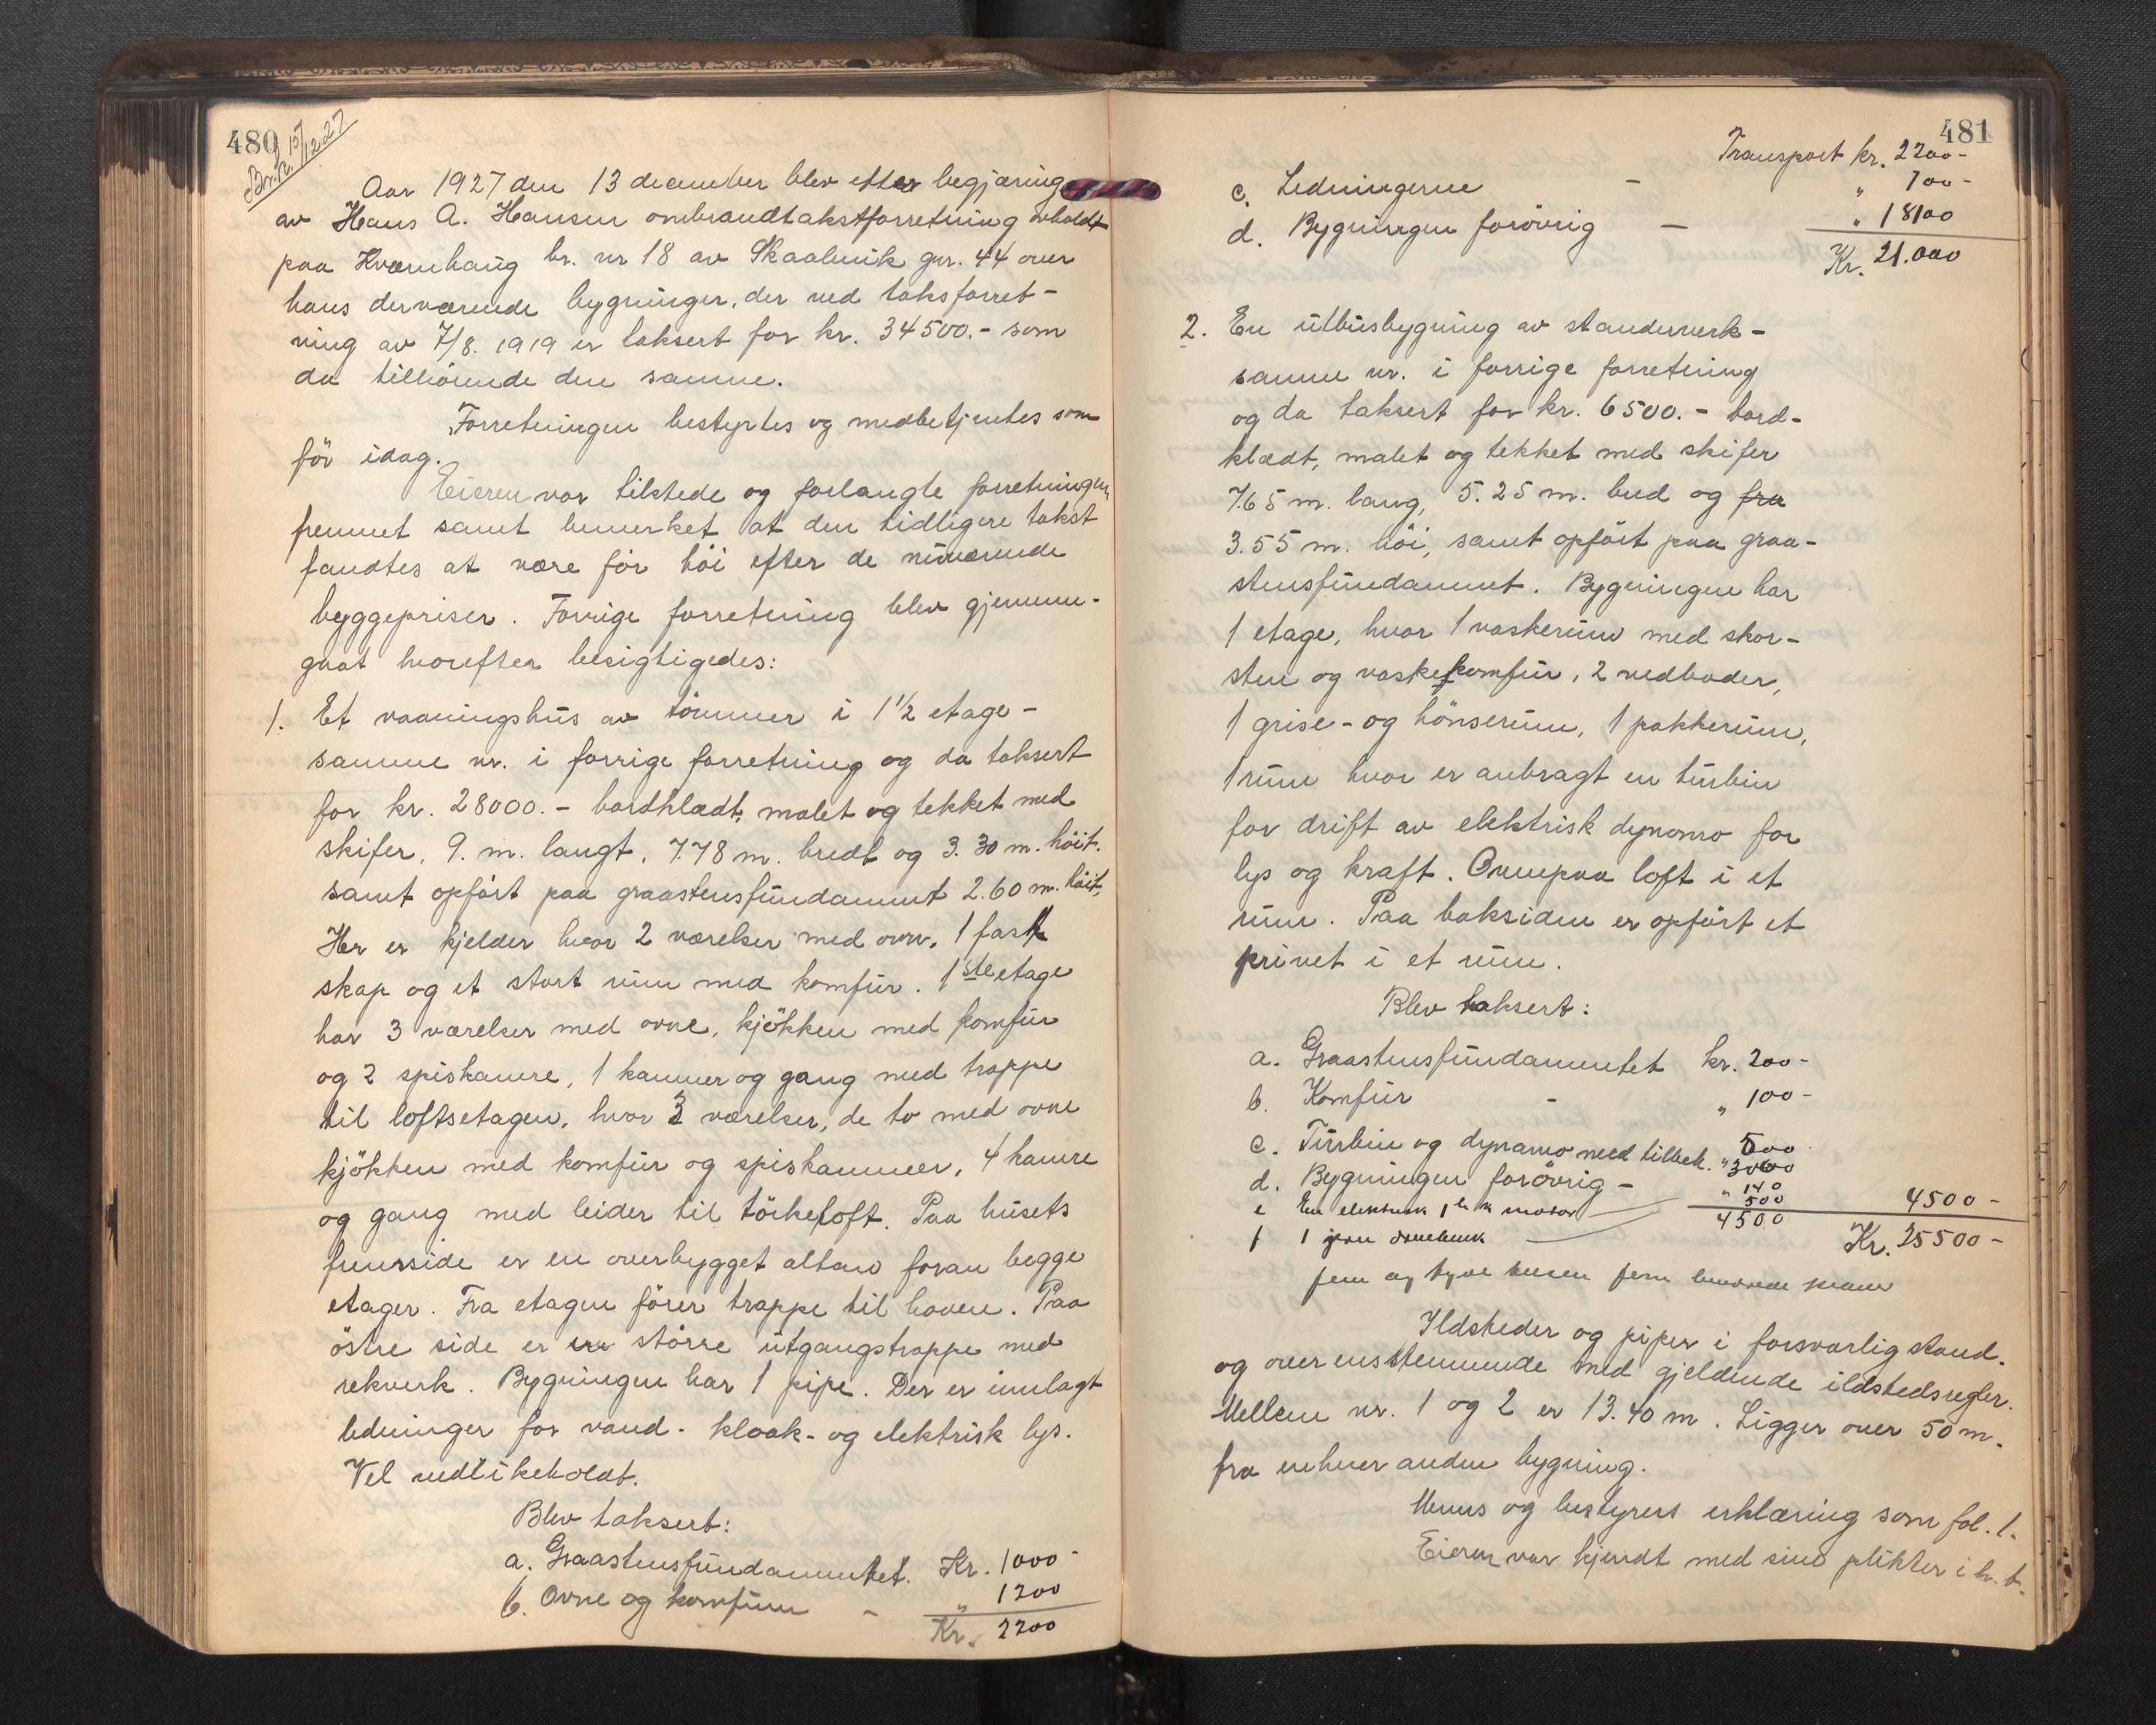 480
Br. k. 15/12 27
Aar 1927 den 13 december blev efter begjæring
av Hans A. Hansen ombrandtakstforretning avholdt
paa Kværnhaug br. nr 18 av Skaalvik gnr. 44 over
hans derværende bygninger, der ved taksforret-
ning av 7/8. 1919 er taksert for kr. 34500.- som
da tilhörende den samme.
Forretningen bestyrtes og medbetjentes som
för idag.
Eieren var tilstede og forlangte forretningen
fremmet samt bemerket at den tidligere takst
fandtes at være for höi efter de nuværende
byggepriser. Forrige forretning blev gjennem-
gaat hvorefter besigtigedes:
1. Et vaaningshus av tömmer i 1 1/2 etage -
samme nr. i forrige forretning og da taksert
for kr. 28000.- bordklædt, malet og tekket med
skifer, 9. m. langt, 7.78 m. bredt og 3.30 m. höit.
samt opfört paa graastensfundament 2.60 m. höit,
Her er kjelder hvor 2 værelser med ovn, 1 fast
skap og et stort rum med komfur. 1ste etage
har 3 værelser med ovne, kjökken med komfur
og 2 spiskamre, 1 kammer og gang med trappe
til loftsetagen, hvor 3 værelser, de to med ovne
kjökken med komfur og spiskammer, 4 kamre
og gang med leider til törkeloft. Paa husets
frunside er en overbygget altan foran begge
etager. Fra etagen förer trappe til haven. Paa
östre side er en större utgangstrappe med
rekverk. Bygningen har 1 pipe. Der er innlagt
ledninger for vand- kloak- og elektrisk lys.
Vel vedlikeholdt.
Blev taksert:
a. Graastensfundamentet. Kr. 1000-
b. Ovne og komfurer - „ 1200
Kr. 2200
481
Transport kr. 2200-
c. Ledningerne - „ 700-
d. Bygningen forövrig - „ 18100
Kr. 21.000
2. En uthusbygning av standerverk -
samme nr. i forrige forretning
og da taksert for kr. 6500.- bord-
klædt, malet og tekket med skifer
7.65 m. lang, 5.25 m. bred og fra
3.55 m. höi, samt opfört paa graa-
stensfundament. Bygningen har
1 etage, hvor 1 vaskerum med skor-
sten og vaskekomfur, 2 vedboder,
1 grise- og hönserum, 1 pakkerum,
1 rum hvor er anbragt en turbin
for drift av elektrisk dynamo for
lys og kraft. Ovenpaa loft i et
rum. Paa baksiden er opfört et
privet i et rum.
Blev taksert:
a. Graastensfundamentet kr. 200-
b. Komfur - „ 100-
c. Turbin og dynamo med tilbeh. „ 500
d. Bygningen forövrig - „ 3060
e En elektrisk 1 h k motor „ 140
f 1 jern dreiebenk 500
4500 4500-
Kr. 25500-
fem og tyve tusen fem hundrede kroner
Ildsteder og piper i forsvarlig stand.
og overensstemmende med gjeldende ildstedsregler.
Mellem nr. 1 og 2 er 13.40 m. Ligger over 50 m.
fra enhver anden bygning.
Mens og bestyrers erklæring som fol. 1.
Eieren var kjendt med sine plikter i h. t.